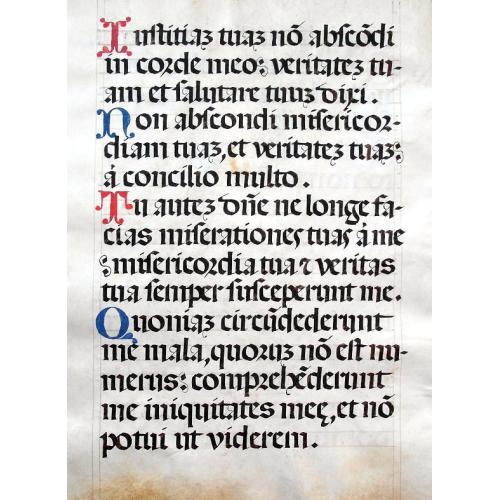 Iustitiaʒ tuaʒ nõ abscõdi
in corde meo: veritateʒ tu-
am et salutare tuuʒ dixi.
Non abscondi misericor-
diam tuaʒ, et veritateʒ tuaʒ:
á concilio multo.
Tu auteʒ dñe ne longe fa-
cias miserationes tuas á me
: misericordia tua ⁊ veritas
tua semper susceperunt me.
Quoniaʒ circũdederunt
me mala, quoruʒ nõ est nu-
merus: comprehẽderunt
me iniquitates meę, et nõ
potui ut viderem.